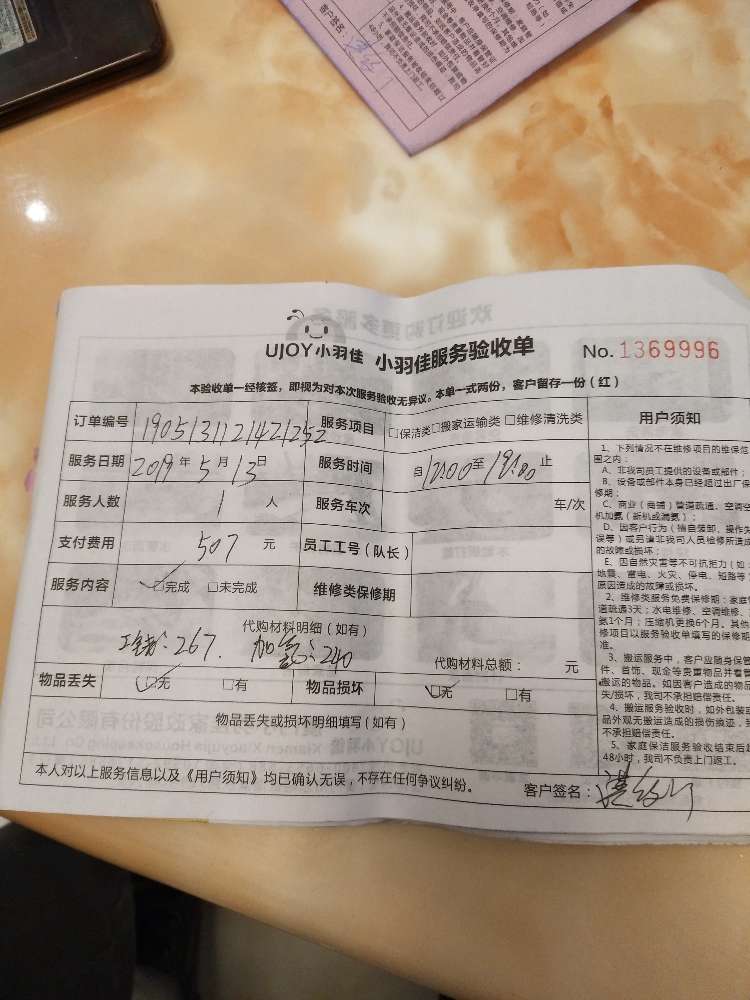 UJOY小羽佳 小羽佳服务验收单 No. 1369996
本验收单一经核签，即视为对本次服务验收无异议。本单一式两份，客户留存一份（红）
订单编号 1905131121421252 服务项目 □保洁类□搬家运输类 □维修清洗类
服务日期 2019 年 5 月 13 日 服务时间 自 12:00 至 止
服务人数 1 人 服务车次 车/次
支付费用 507 元 员工工号（队长）
服务内容 □完成 □未完成 维修类保修期
代购材料明细（如有）
267. 加氟：240
代购材料总额： 元
物品丢失 □无 □有 物品损坏 □无 □有
物品丢失或损坏明细填写（如有）
本人对以上服务信息以及《用户须知》均已确认无误，不存在任何争议纠纷。
客户签名：
用户须知
1、下列情况不在维修项目的维保范
围之内：
A、非我司员工提供的设备或部件；
B、设备或部件本身已经超过出厂保
修期；
C、商业（商铺）管道疏通、空调空
机加氟（新机或漏氟）；
D、因客户行为（擅自装卸、操作失
误等）或另请非我司人员检修所造成
的故障或损坏；
E、因自然灾害等不可抗拒力（如：
地震、雷电、火灾、停电、短路等
原因造成的故障或损坏。
2、维修类服务免费保修期：家庭管
道疏通3天；水电维修、空调维修、
氟1个月；压缩机更换6个月。其他
修项目以服务验收单填写的保修期
准。
3、搬运服务中，客户应随身保管
件、首饰、现金等贵重物品并看管
搬运的物品。如因客户造成的物品
失/损坏，我司不承担赔偿责任。
4、搬运服务验收时，如外包装或
品外观无搬运造成的损伤痕迹，我
不承担赔偿责任。
5、家庭保洁服务验收结束后超
48小时，我司不负责上门返工。
客户签名：